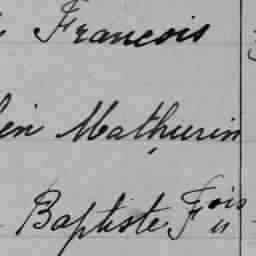 Francois
Mathurin
Baptiste Fois